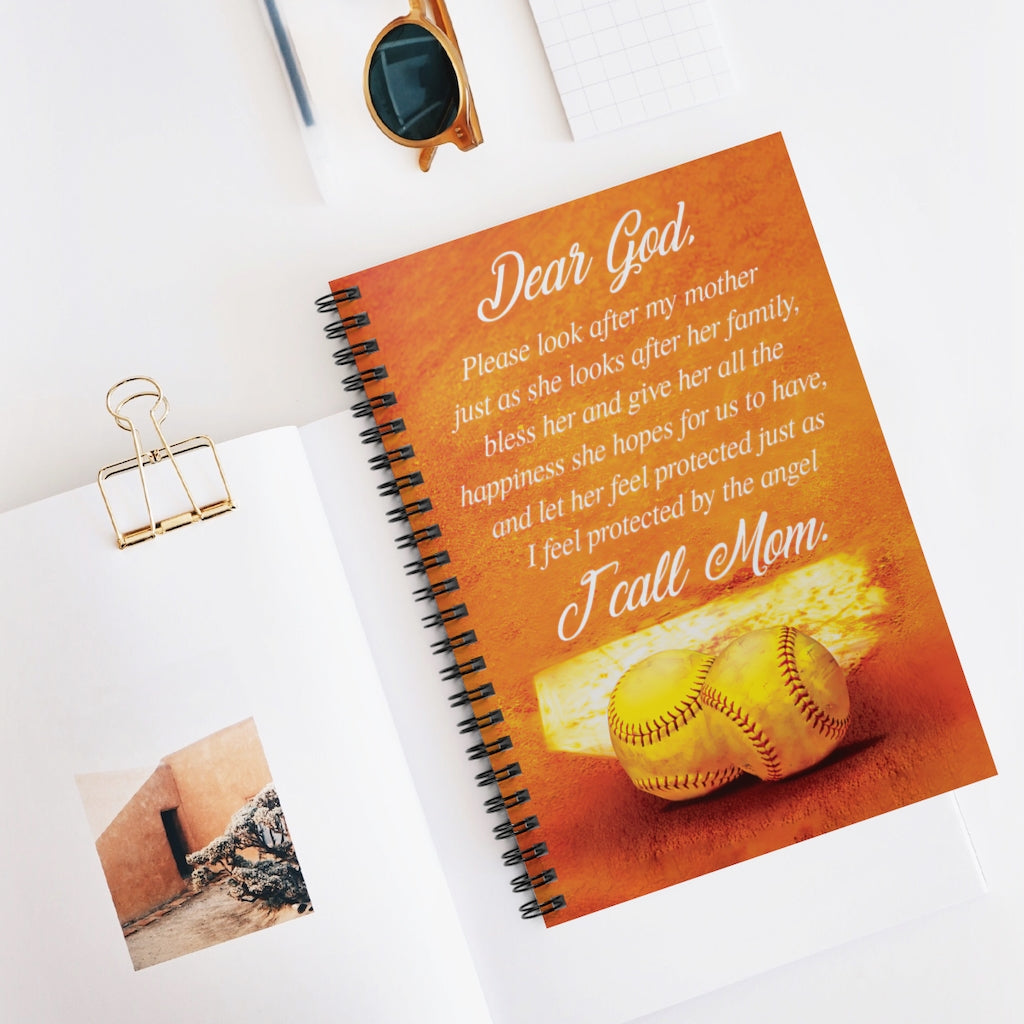 Dear God,
Please look after my mother
just as she looks after her family,
bless her and give her all the
happiness she hopes for us to have,
and let her feel protected just as
I feel protected by the angel
I call Mom.